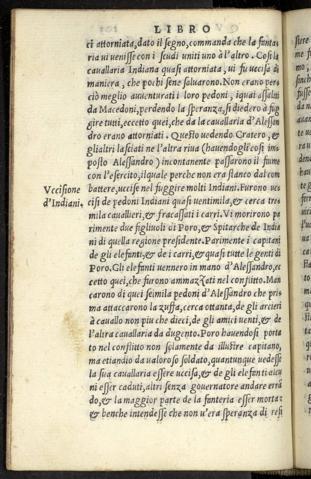 LIBRO
ri attorniata, dato il segno, commanda che la fanta-
ria ui uenisse con i scudi uniti uno à l'altro. Cosi la
cauallaria Indiana quasi attorniata, ui fu uccisa di
maniera, che pochi sene saluarono. Non erano per-
ciò meglio auenturati i loro pedoni, iquai assaliti
da Macedoni, perdendo la speranza, si diedero à fug-
gire tutti, eccetto quei, che da la cauallaria d'Alessan
dro erano attorniati. Questo uedendo Cratero, &
gli altri lasciati ne l'altra riua (hauendogli cosi im-
posto Alessandro) incontanente passarono il fiume
con l'essercito, ilquale perche non era stanco dal com
battere, uccise nel fuggire molti Indiani. Furono uc-
Vccisione
d'Indiani.
cisi de pedoni Indiani quasi uentimila, & cerca tre-
mila cauallieri, & fracassati i carri. Vi morirono pa
rimente due figliuoli di Poro, & Spitarche de India
ni di quella regione presidente. Parimente i capitani
de gli elefanti, & de i carri, & quasi tutte le genti di
Poro. Gli elefanti uennero in mano d'Alessandro, ec
cetto quei, che furono ammazzati nel conflitto. Man
carono di quei seimila pedoni d'Alessandro che pri
ma attaccarono la zuffa, cerca ottanta, de gli arcieri
à cauallo non piu che dieci, de gli amici uenti, & de
l'altra cauallaria da dugento. Poro hauendosi porta
to nel conflitto non solamente da illustre capitano,
ma etiandio da ualoroso soldato, quantunque uedesse
la sua cauallaria essere uccisa, & de gli elefanti alcu
ni esser caduti, altri senza gouernatore andare erră
do, & la maggior parte de la fanteria esser morta:
& benche intendesse che non u'era speranza di resi